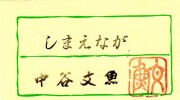 しまえなが
中谷文魚